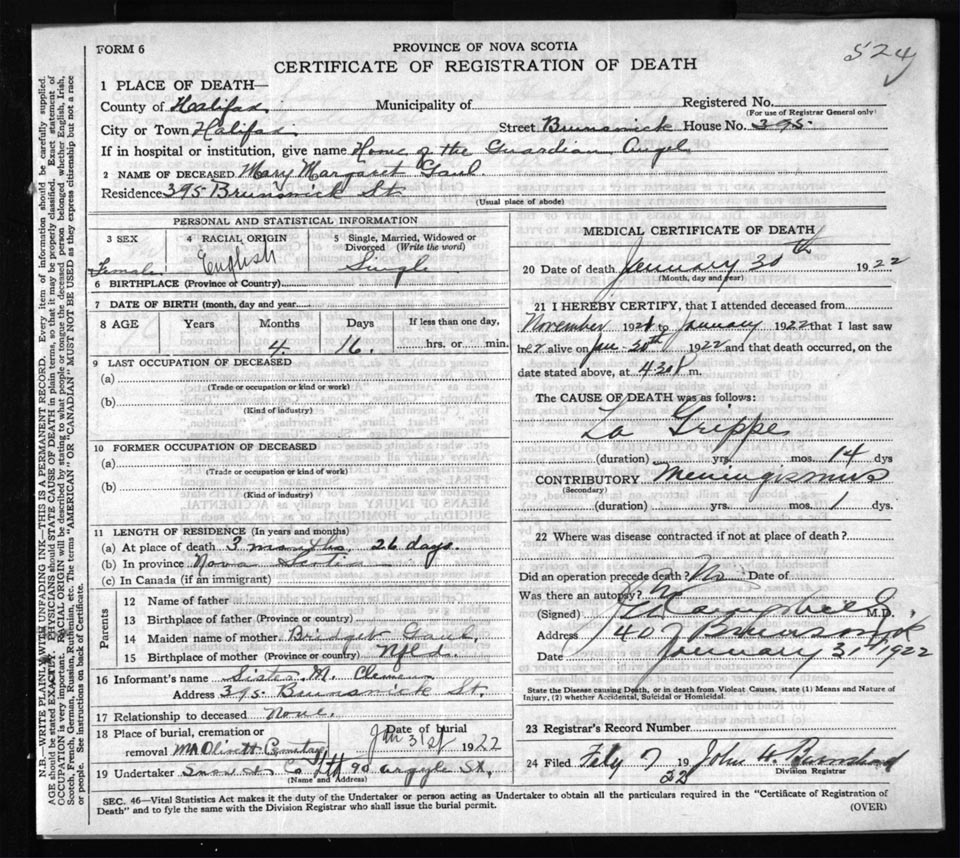 FORM 6
PROVINCE OF NOVA SCOTIA
524
CERTIFICATE OF REGISTRATION OF DEATH
1 PLACE OF DEATH—
County of Halifax Municipality of Registered No.
(For use of Registrar General only)
City or Town Halifax Street Brunswick House No. 395.
If in hospital or institution, give name Home of the Guardian Angel
2 NAME OF DECEASED Mary Margaret Gaul.
Residence 395 Brunswick St.
(Usual place of abode)
PERSONAL AND STATISTICAL INFORMATION
3 SEX 4 RACIAL ORIGIN 5 Single, Married, Widowed or Divorced (Write the word)
Female English Single
6 BIRTHPLACE (Province or Country)
7 DATE OF BIRTH (month, day and year)
8 AGE Years Months Days If less than one day,
4 16. hrs. or min.
9 LAST OCCUPATION OF DECEASED
(a)
(Trade or occupation or kind of work)
(b)
(Kind of industry)
10 FORMER OCCUPATION OF DECEASED
(a)
(Trade or occupation or kind of work)
(b)
(Kind of industry)
11 LENGTH OF RESIDENCE (In years and months)
(a) At place of death 3 months, 26 days.
(b) In province Nova Scotia
(c) In Canada (if an immigrant)
Parents
12 Name of father
13 Birthplace of father (Province or country)
14 Maiden name of mother Bridget Gaul,
15 Birthplace of mother (Province or country) Nfld.
16 Informant's name Sister M.
Address 395 Brunswick St.
17 Relationship to deceased None.
18 Place of burial, cremation or Date of burial
removal Mt Olivett Cemetary Jan 31st 1922
19 Undertaker Snow & Co Ltd 90 Argyle St,
(Name and Address)
MEDICAL CERTIFICATE OF DEATH
20 Date of death January 30th 1922
(Month, day and year)
21 I HEREBY CERTIFY, that I attended deceased from
November 1921 to January 1922 that I last saw
her alive on Jan - 30th 1922 and that death occurred, on the
date stated above, at 4.30 P. m.
The CAUSE OF DEATH was as follows:
La Grippe
(duration) yrs. mos. 14 dys
CONTRIBUTORY Meningismus
(Secondary)
(duration) yrs. mos. 1 dys.
22 Where was disease contracted if not at place of death?
Did an operation precede death? No Date of
Was there an autopsy? No
(Signed) Campbell M.D.
Address 407 Brunswick
Date January 31st 1922
State the Disease causing Death, or in death from Violent Causes, state (1) Means and Nature of
Injury, (2) whether Accidental, Suicidal or Homicidal.
23 Registrar's Record Number
24 Filed Feby 7 22 John H.
Division Registrar
SEC. 46—Vital Statistics Act makes it the duty of the Undertaker or person acting as Undertaker to obtain all the particulars required in the "Certificate of Registration of
Death" and to fyle the same with the Division Registrar who shall issue the burial permit.
(OVER)
N.B.—WRITE PLAINLY WITH UNFADING INK—THIS IS A PERMANENT RECORD. Every item of information should be carefully supplied.
AGE should be stated EXACTLY. PHYSICIANS should STATE CAUSE OF DEATH in plain terms, so that it may be properly classified. Exact statement of
OCCUPATION is very important. RACIAL ORIGIN will be described by stating to what people or tongue the deceased person belonged whether English, Irish,
Scotch, French, German, Russian, Ruthenian, etc. The terms "AMERICAN" OR "CANADIAN" MUST NOT BE USED as they express citizenship but not a race
or people. See instructions on back of Certificate.